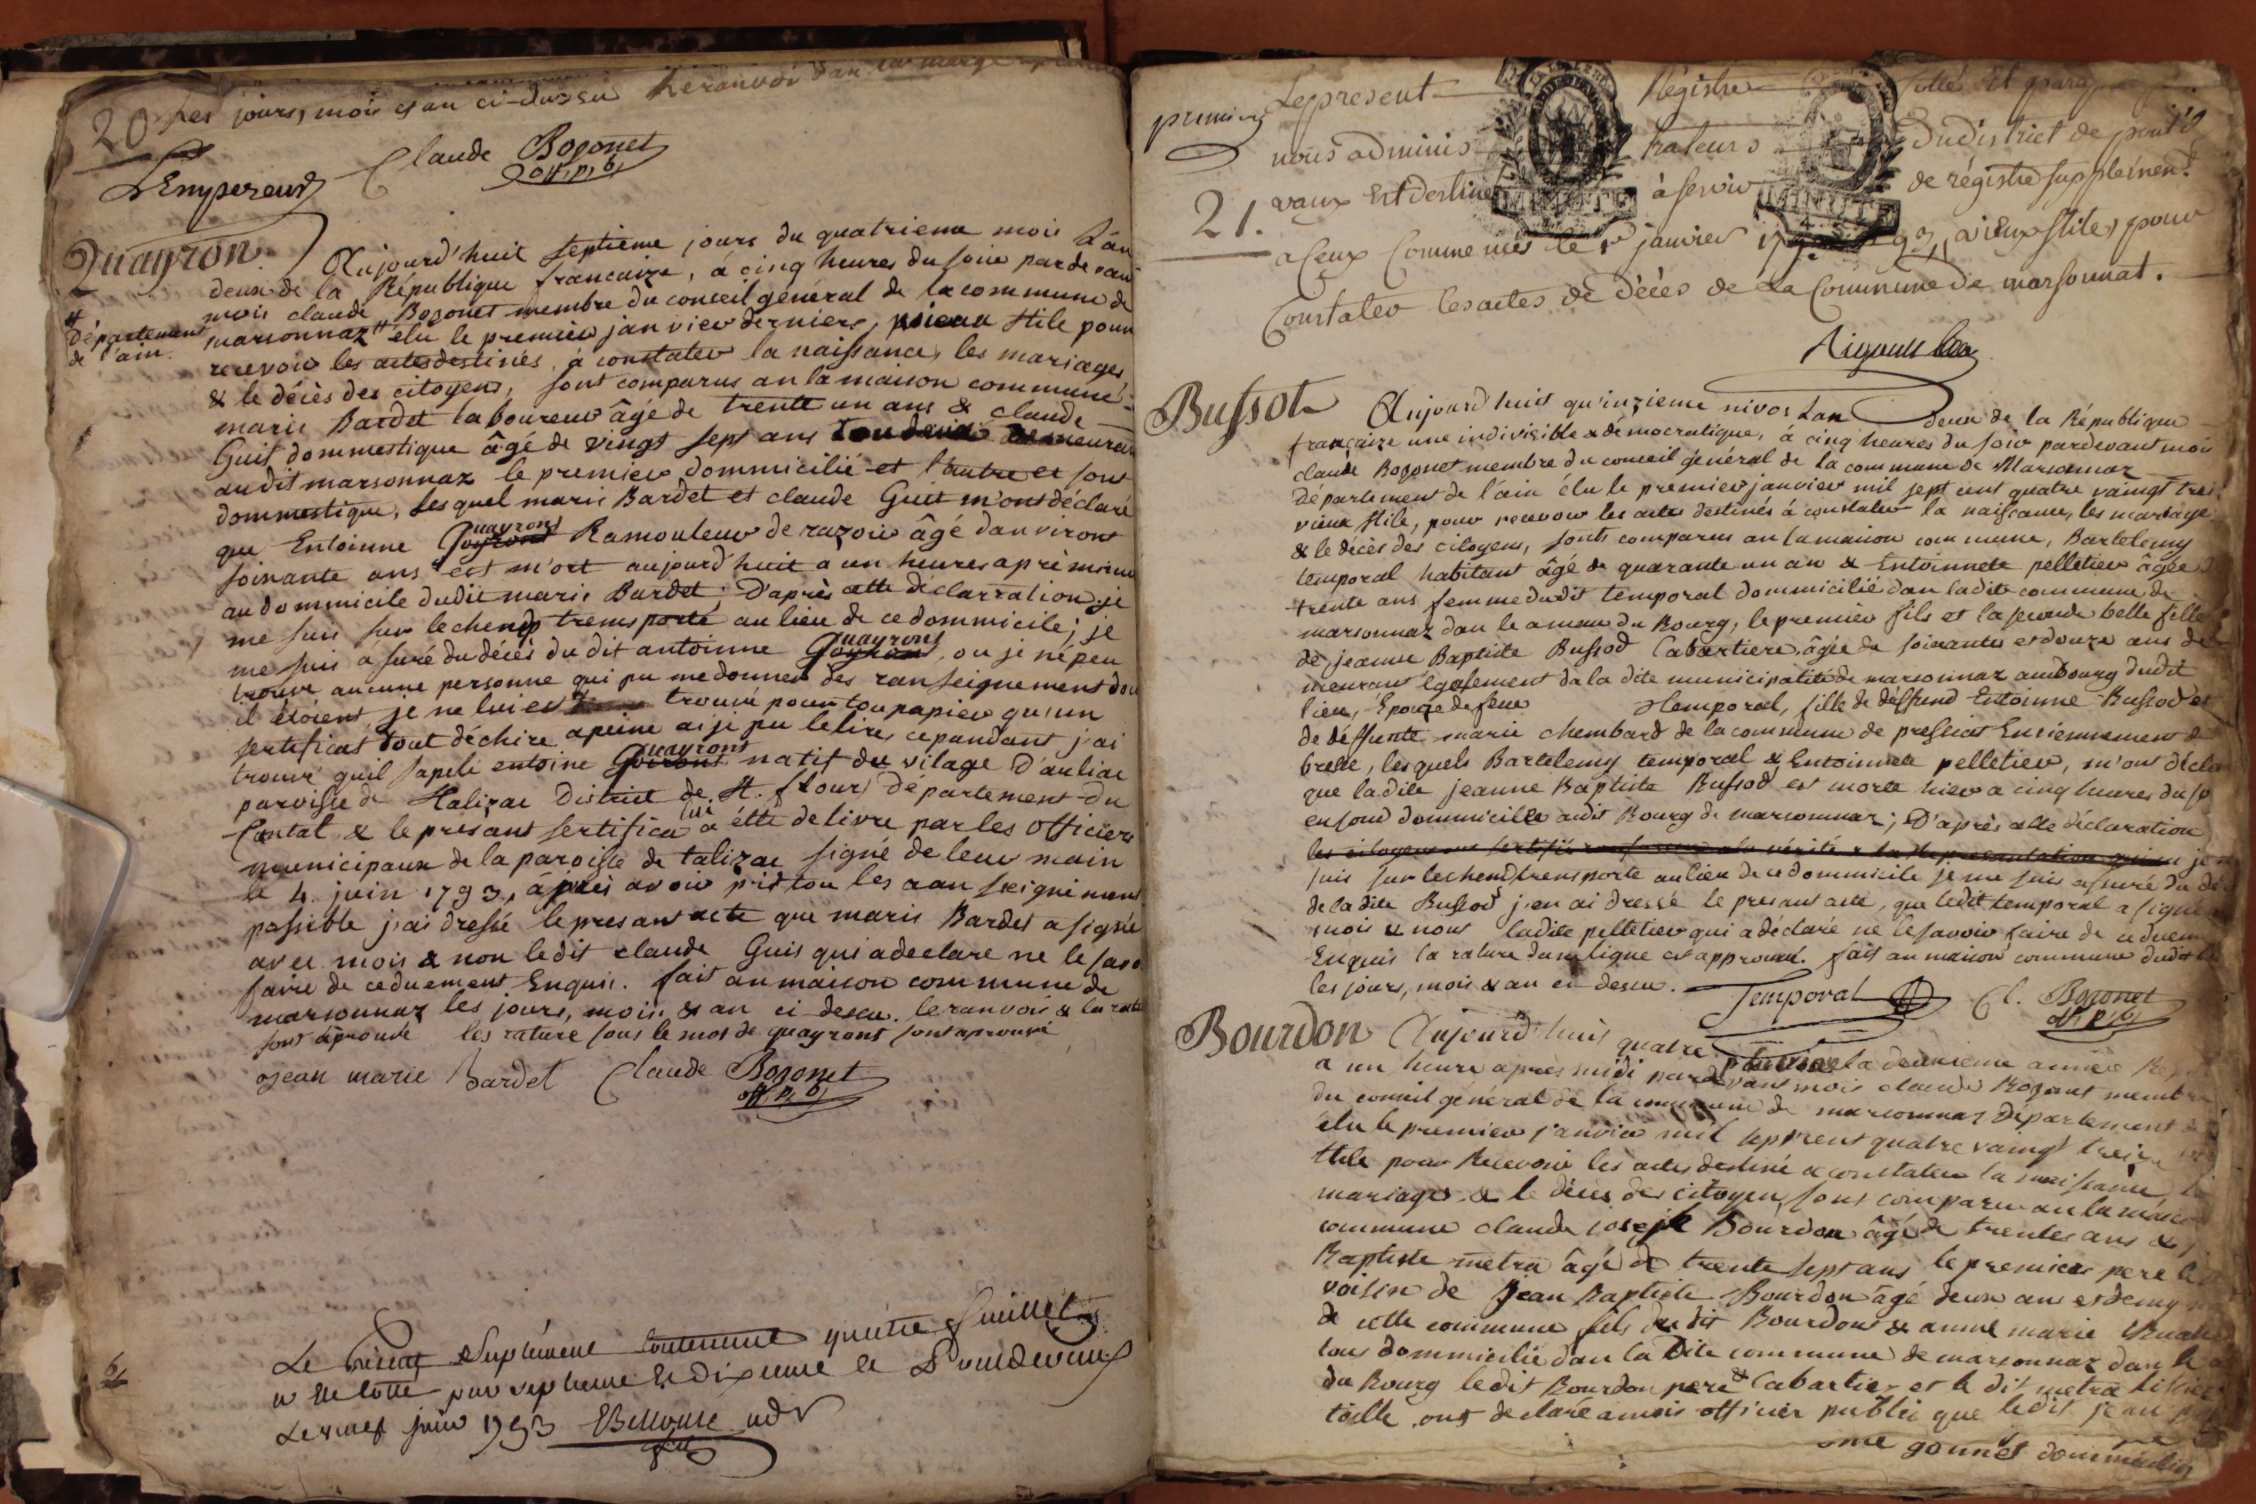 20 les jours, mois et an ci-dessu le ranvoi dan la marge
L'Empereur Claude Bozonet
off. p. b.
Quayron
Aujourd'huit septieme jours du quatrieme mois L'an
deux de la République francaize, á cinq heures du soir pardevant
mois claude Bozonet membre du conceil général de la commune de
marsonnaz # élu le premier janvier derniers, stile pour
# Département
de l'ain.
recevoir les actes destinés á constater la naissance, les mariages
& le décès des citoyens, sont comparus an la maison commune
marie Bardet laboureur âgé de trente un ans & claude
Guit dommestique âgé de vingt sept ans demeurant
audit marsonnaz le premier dommicilié et l'autre et sont
dommestique, lesquel marie Bardet et claude Guit m'ont déclaré
que Entoinne Quayront Ramouleur de razoir âgé d'anviront
soixante ans est m'ort aujourd'huit a un heures aprè mi
au dommicile dudit marie Bardet; D'après cette déclarration je
me suis sur le chend transporté au lieu de ce dommicile; je
me suis assuré du décès du dit antoinne Quayront, ou je népeu
trouvé aucune personne qui pu me donner des ranseignement dou
il étoient, je ne lui ei trouvé pour tou papier qu'un
sertificat tout déchiré apeine ai je pu le lire, cepandant j'ai
trouvé quil sapelé entoine Quayront natif du vilage D'auliac
paroisse de Talizac District de St. flour Département du
Cantal & le présant sertifica lui a etté delivre par les officiers
municipaux de la paroisse de talizac signé de leur main
le 4 juin 1793, après avoir pris tou les ranseignemens
possible j'ai dressé le presant acte que marie Bardet a signé
avec mois & non ledit claude Guit qui a declaré ne le savoir
faire de ce duement Enquis. fait an maison commune de
marsonnaz les jours, mois & an ci-dessu. le ranvois & la rature
sont aprouvé les rature sous le mot de quayront sont aprouvé
Jean marie Bardet Claude Bozonet
off. p. b.
Le présent Suplément contenant quatre feuillets
a été Cotté par
Le neuf juin 1793
premier
21.
Le present Régistre Cotté et paraphé
nous administrateurs Du district de pont d
vaux Est destiné à servir de régistre supplément.
a Ceux Commencés le 1er janvier 1793, vieux stile, pour
Constater les actes de décès de la Commune de marsonnat.
Bussot
Aujourd'huit quinzieme nivos Lan deux de la République
françaize une indivisible & démocratique, á cinq heures du soir pardevant moi
claude Bozonet membre du conceil général de la commune de Marsonnaz
Département de l'ain élu le premier janvier mil sept cent quatre vaingt trei
vieux stile, pour recevoir les actes destinés á constater la naissance, les mariage
& le décès des citoyens, sont comparus an la maison commune, Bartelemy
temporal habitant âgé de quarante un an & Entoinnete pelletier âgée
trente ans femme dudit temporal dommicilié dan ladite commune de
marsonnaz dan le ameau du Bourg, le premier fils et la seconde belle fille
de jeanne Baptiste Bussod Cabartiere âgée de soixante et douze ans de
meurant égalsement da la dite municipatité de marsonnaz au Bourg dudit
lieu, Epouze de feue temporal, fille de deffund Entoinne Bussod et
de deffunte marie chembard de la commune de pressiat Enciennement de
bresse, lesquels Bartelemy temporal & Entoinnete pelletier, m'ont décla
que ladite jeanne Baptiste Bussod est morte hier a cinq heures du so
en sond dommicille audit Bourg de marsonnaz; D'après cette déclaration
je
suis sur le chend transporte au lieu de ce dommicile je me suis assuré du dé
de ladite Bussod j'en ai dressé le presant acte, que ledit temporal a signé
mois & nont ladite pelletier qui a déclaré ne le savoir faire de ce duem
Enquis la rature dune ligne est approuvé. fait an maison commune dudit
les jours, mois & an ci dessu. Temporal Cl. Bozonet
off. p. b.
Bourdon
Aujourd'huit quatre pluviose la deuxieme année
a un heure après midi pardevant mois claude Bozonet membre
du conceil général de la commune de marsonnaz département
élu le premier janvier mil sept cent quatre vaingt treize
stile pour Recevoir les actes destiné a constater la naissance,
mariages & le décès des citoyen, sont comparu an la maison
commune claude joseph Bourdon âgé de trentes ans &
Baptiste metra âgé de trente sept ans le premier pere le
voisin de Jean Baptiste Bourdon âgé deux ans et demy
de cette commune fils du dit Bourdon & anne marie
tous dommicilié dan la dite commune de marsonnaz dan le
du Bourg ledit Bourdon pere Cabartier et le dit metra tissier
toille ont declaré a mois officier publie que ledit jean
gonnet dommicilié